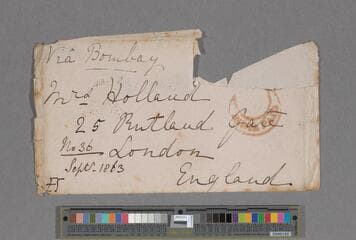 Via Bombay
Mrs Holland
25 Rutland Gate
No 36
London
Septr. 1863
England